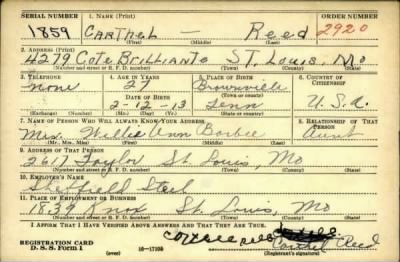 SERIAL NUMBER 1. NAME (Print) ORDER NUMBER
1859 CARTHEL — Reed 2920
(First) (Middle) (Last)
2. ADDRESS (Print)
4279 Cote Brilliante ST. Louis, Mo
(Number and street or R. F. D. number) (Town) (County) (State)
3. TELEPHONE 4. AGE IN YEARS 5. PLACE OF BIRTH 6. COUNTRY OF CITIZENSHIP
none 27 Brownsville
DATE OF BIRTH (Town or county)
2-12-13 Tenn U.S.A.
(Exchange) (Number) (Mo.) (Day) (Yr.) (State or country)
7. NAME OF PERSON WHO WILL ALWAYS KNOW YOUR ADDRESS 8. RELATIONSHIP OF THAT PERSON
Mrs. Willie Ann Barbee Aunt
(Mr., Mrs., Miss) (First) (Middle) (Last)
9. ADDRESS OF THAT PERSON
2617 Taylor St. Louis, Mo
(Number and street or R. F. D. number) (Town) (County) (State)
10. EMPLOYER'S NAME
Sheffield Steel
11. PLACE OF EMPLOYMENT OR BUSINESS
1839 Knox St. Louis, Mo
(Number and street or R. F. D. number) (Town) (County) (State)
I AFFIRM THAT I HAVE VERIFIED ABOVE ANSWERS AND THAT THEY ARE TRUE.
REGISTRATION CARD
D. S. S. Form 1 (over) 16-17105 Carthel Reed
(Registrant's signature)